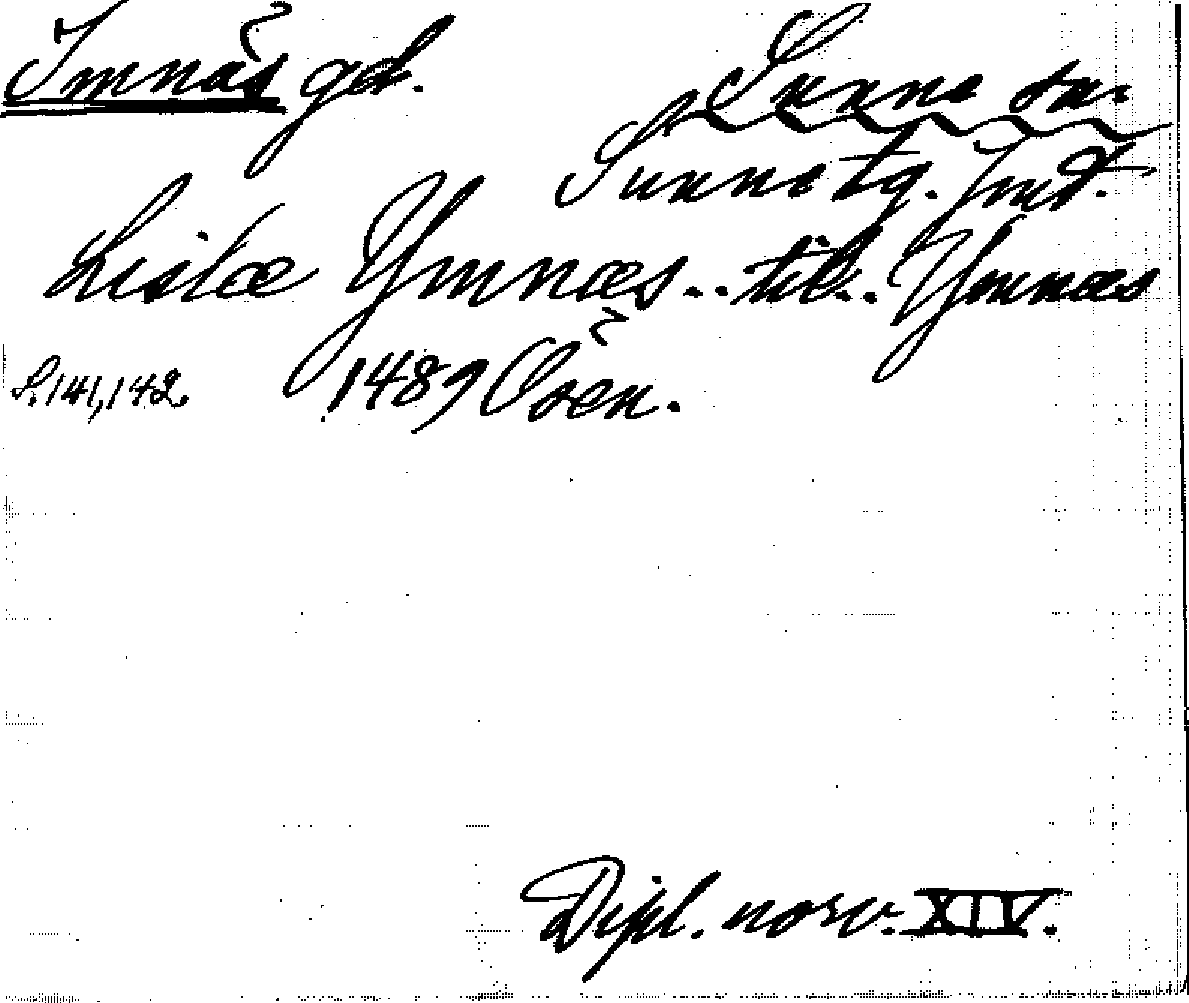 Imnäs gd.
Sunne sn.
Sunne tg. Jmd.
Lislæ Ymnæs .. til .. Ymnæs
S. 141, 142. 1489 Ösen.
Dipl. norv. XIV.